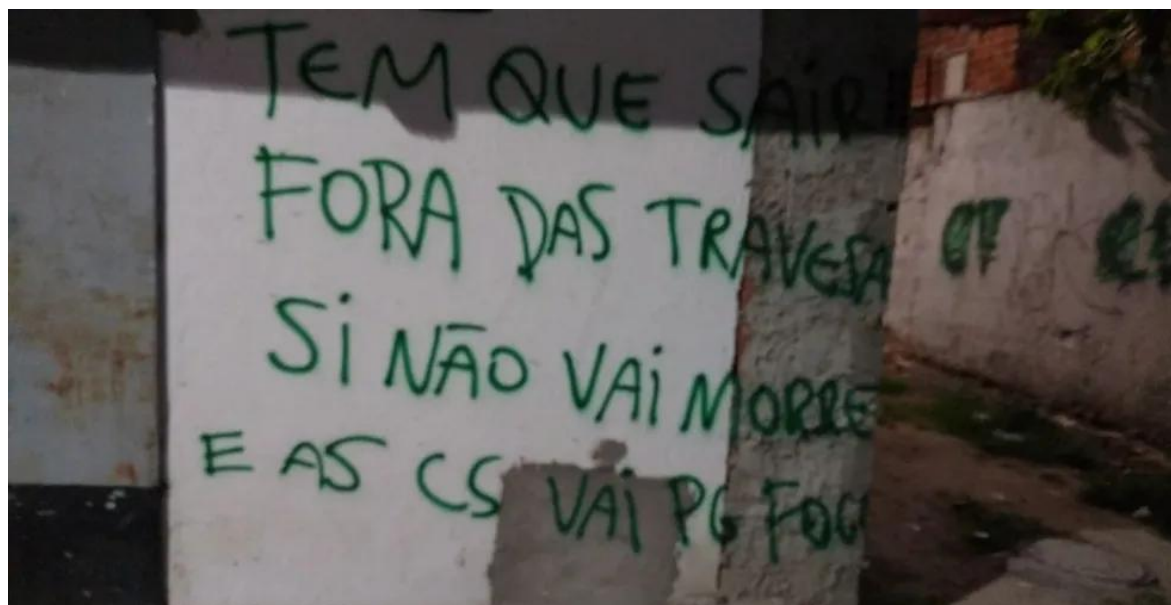 TEM QUE SAIR!!
FORA DAS TRAVESA
Si NÃO VAi MORRE
E AS CS VAi PG FOGO